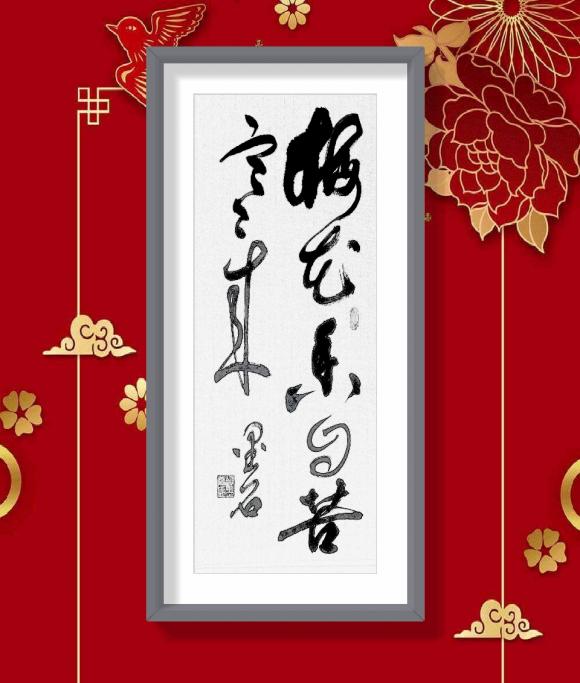 梅花香自苦
寒来
墨石